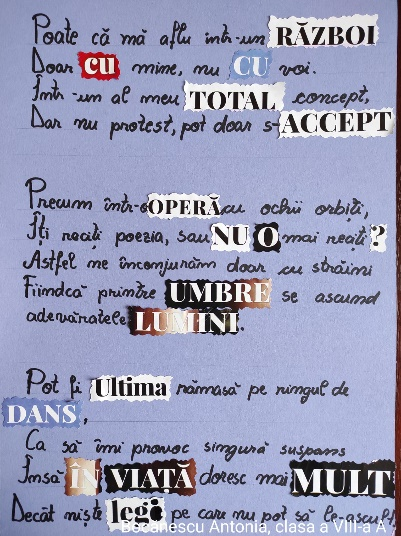 Poate că mă aflu într-un RĂZBOI
Doar cu mine, nu CU voi.
Într-un al meu TOTAL concept,
Dar nu protest, pot doar s-ACCEPT
Precum într-o OPERĂ cu ochii orbiți,
Îți reciți poezia, sau NU O mai reciți?
Astfel ne înconjurăm doar cu străini
Fiindcă printre UMBRE se ascund
adevăratele LUMINI.
Pot fi Ultima rămasă pe ringul de
DANS,
Ca să îmi provoc singură suspans
Însă ÎN VIAȚĂ doresc mai MULT
Decât niște legi pe care nu pot să le-ascult!
Bocănescu Antonia, clasa a VIII-a A